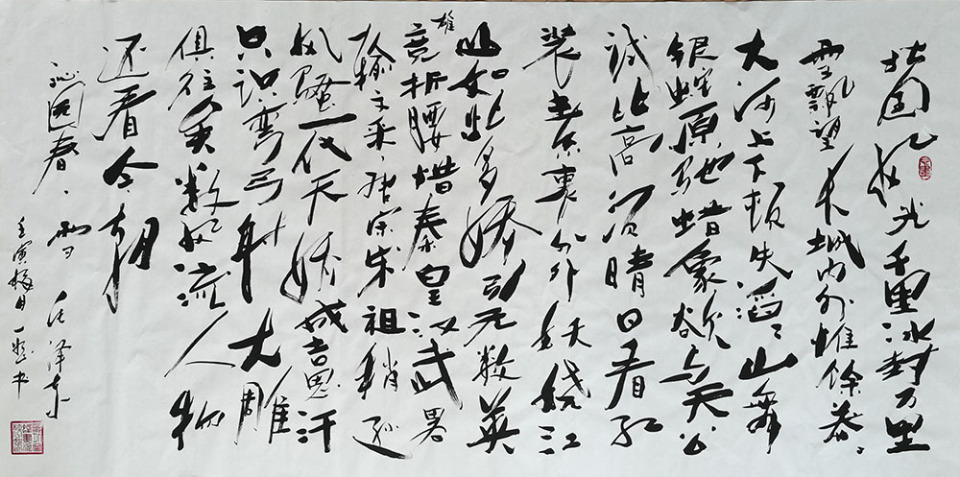 北国风光千里冰封万里
雪飘望长城内外惟馀莽々
大河上下顿失滔々山舞
银蛇原驰蜡象欲与天公
试比高须晴日看红
装素裹分外妖娆江
山如此多娇引无数英
雄竞折腰惜秦皇汉武略
输文采唐宗宋祖稍逊
风骚一代天骄成吉思汗
只识弯弓射大雕
俱往矣数风流人物
还看今朝
沁园春·雪 毛泽东
壬寅 月一 书